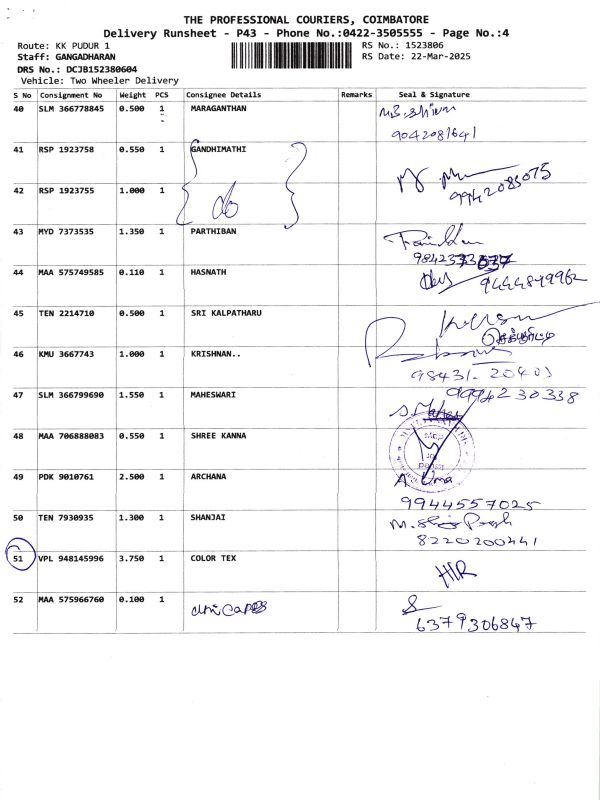 THE PROFESSIONAL COURIERS, COIMBATORE
Delivery Runsheet - P43 - Phone No.:0422-3505555 - Page No.:4
Route: KK PUDUR 1 RS No.: 1523806
Staff: GANGADHARAN RS Date: 22-Mar-2025
DRS No.: DCJB152380604
Vehicle: Two Wheeler Delivery
S No Consignment No Weight PCS Consignee Details Remarks Seal & Signature
40 SLM 366778845 0.500 1 MARAGANTHAN
9042081641
41 RSP 1923758 0.550 1 GANDHIMATHI
9942085075
42 RSP 1923755 1.000 1 do
43 MYD 7373535 1.350 1 PARTHIBAN
44 MAA 575749585 0.110 1 HASNATH
9444849962
45 TEN 2214710 0.500 1 SRI KALPATHARU
46 KMU 3667743 1.000 1 KRISHNAN..
98431-20401
47 SLM 366799690 1.550 1 MAHESWARI 9994230338
48 MAA 706888083 0.550 1 SHREE KANNA
49 PDK 9010761 2.500 1 ARCHANA A Uma
9944557025
50 TEN 7930935 1.300 1 SHANJAI
8220200441
51 VPL 948145996 3.750 1 COLOR TEX HIR
52 MAA 575966760 0.100 1
6379306847